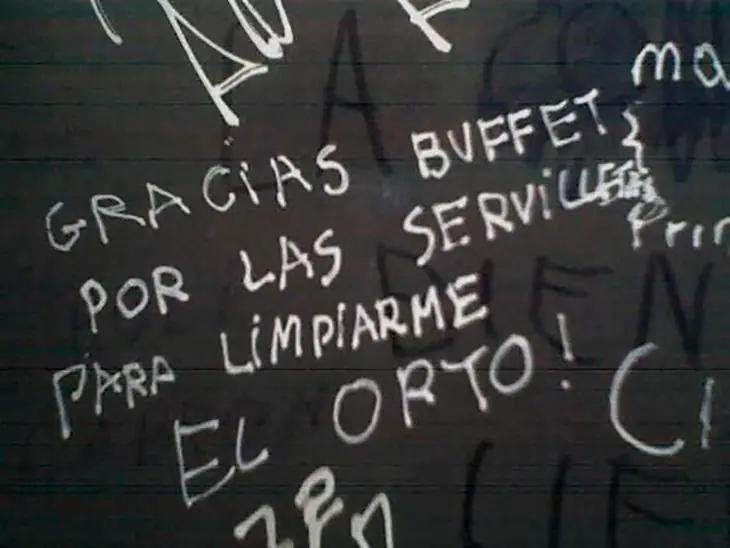 GRACIAS BUFFET
POR LAS SERVILLETAS
PARA LIMPIARME
EL ORTO!
ma
Prin
CI